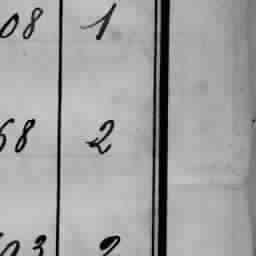 08 1
68 2
03 2